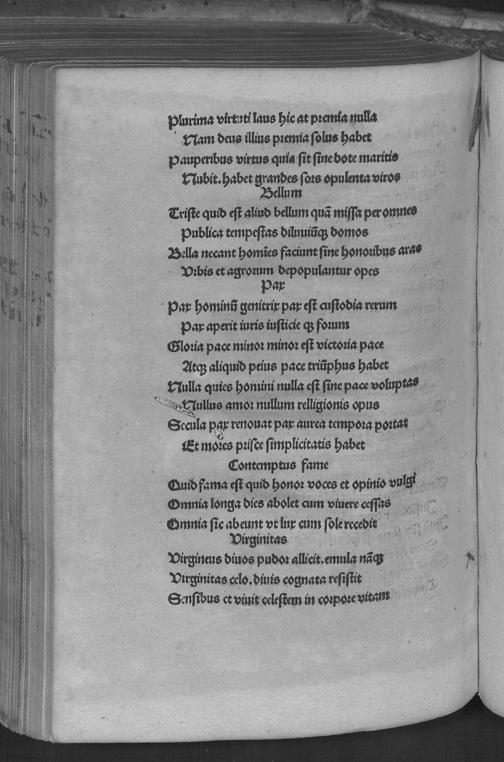 Plurima virtuti laus hic at premia nulla
Nam deus illius premia solus habet
Pauperibus virtus quia sit sine dote maritis
Nubit. habet grandes sors opulenta viros
Bellum
Triste quid est aliud bellum quã missa per omnes
Publica tempestas diluuiũqꝫ domos
Bella necant homĩes faciunt sine honoribus aras
Vrbis et agrorum depopulantur opes
Pax
Pax hominũ genitrix pax est custodia rerum
Pax aperit iuris iusticie qꝫ forum
Gloria pace minor minor est victoria pace
Atqꝫ aliquid peius pace triũphus habet
Nulla quies homini nulla est sine pace voluptas
Nullus amor nullum relligionis opus
Secula pax renouat pax aurea tempora portat
Et mores prisce simplicitatis habet
Contemptus fame
Quid fama est quid honor voces et opinio vulgi
Omnia longa dies abolet cum viuere cessas
Omnia sic abeunt vt lux cum sole recedit
Virginitas
Virgineus diuos pudor allicit. emula nãqꝫ
Virginitas celo. diuis cognata resistit
Sensibus et viuit celestem in corpore vitam